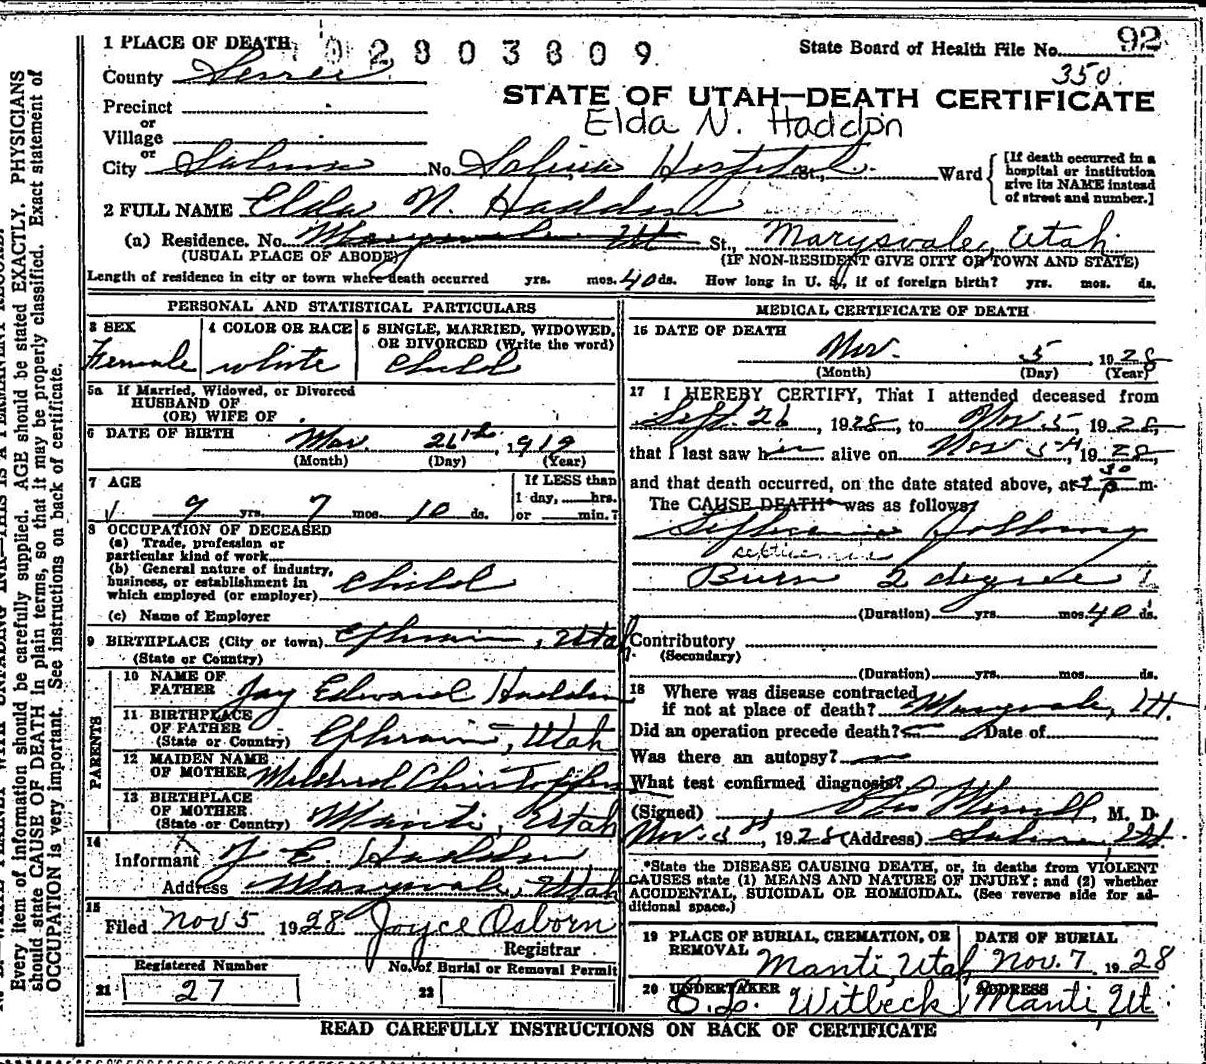 1 PLACE OF DEATH 02803809 State Board of Health File No. 92
County Sevier 350
STATE OF UTAH—DEATH CERTIFICATE
Precinct
or
Village
Elda N. Haddon
or
City Salina No. Salina Hospital St., Ward
[If death occurred in a hospital or institution give its NAME instead of street and number.]
2 FULL NAME Elda N. Haddon
(a) Residence. No. Marysvale Ut St., Marysvale, Utah
(USUAL PLACE OF ABODE) (IF NON-RESIDENT GIVE CITY OR TOWN AND STATE)
Length of residence in city or town where death occurred yrs. mos. 40 ds. How long in U. S., if of foreign birth? yrs. mos. ds.
PERSONAL AND STATISTICAL PARTICULARS
3 SEX
Female
4 COLOR OR RACE
white
5 SINGLE, MARRIED, WIDOWED, OR DIVORCED (Write the word)
Child
5a If Married, Widowed, or Divorced
HUSBAND OF
(OR) WIFE OF
6 DATE OF BIRTH Mar. 26th, 1919
(Month) (Day) (Year)
7 AGE
9 yrs. 7 mos. 10 ds.
If LESS than
1 day, hrs.
or min.?
8 OCCUPATION OF DECEASED
(a) Trade, profession or
particular kind of work
(b) General nature of industry,
business, or establishment in
which employed (or employer) Child
(c) Name of Employer
9 BIRTHPLACE (City or town) Ephraim, Utah
(State or Country)
PARENTS
10 NAME OF FATHER Jay Edward Haddon
11 BIRTHPLACE OF FATHER (State or Country) Ephraim, Utah
12 MAIDEN NAME OF MOTHER Mildred
13 BIRTHPLACE OF MOTHER (State or Country) Manti, Utah
14
Informant J. E. Haddon
Address Marysvale, Utah
15
Filed Nov 5 1928 Joyce Osborn
Registrar
Registered Number
21 27
No. of Burial or Removal Permit
22
MEDICAL CERTIFICATE OF DEATH
16 DATE OF DEATH
Nov. 5, 1928
(Month) (Day) (Year)
17 I HEREBY CERTIFY, That I attended deceased from
Sept. 26, 1928, to Nov. 5, 1928,
that I last saw h alive on Nov 5th, 1928,
and that death occurred, on the date stated above, at P m.
The CAUSE DEATH* was as follows:
Septicemia following
septicemia
Burn 2 degree
(Duration) yrs. mos. 40 ds.
Contributory
(Secondary)
(Duration) yrs. mos. ds.
18 Where was disease contracted
if not at place of death? Marysvale, Ut.
Did an operation precede death? Date of
Was there an autopsy?
What test confirmed diagnosis?
(Signed) M. D.
Nov. 5th, 1928 (Address) Salina, Ut.
*State the DISEASE CAUSING DEATH, or, in deaths from VIOLENT
CAUSES state (1) MEANS AND NATURE OF INJURY; and (2) whether
ACCIDENTAL, SUICIDAL OR HOMICIDAL. (See reverse side for ad-
ditional space.)
19 PLACE OF BURIAL, CREMATION, OR REMOVAL
Manti, Utah
DATE OF BURIAL
Nov. 7 1928
20 UNDERTAKER
Witbeck
ADDRESS
Manti, Ut.
READ CAREFULLY INSTRUCTIONS ON BACK OF CERTIFICATE
Every item of information should be carefully supplied. AGE should be stated EXACTLY. PHYSICIANS
should state CAUSE OF DEATH in plain terms, so that it may be properly classified. Exact statement of
OCCUPATION is very important. See instructions on back of certificate.